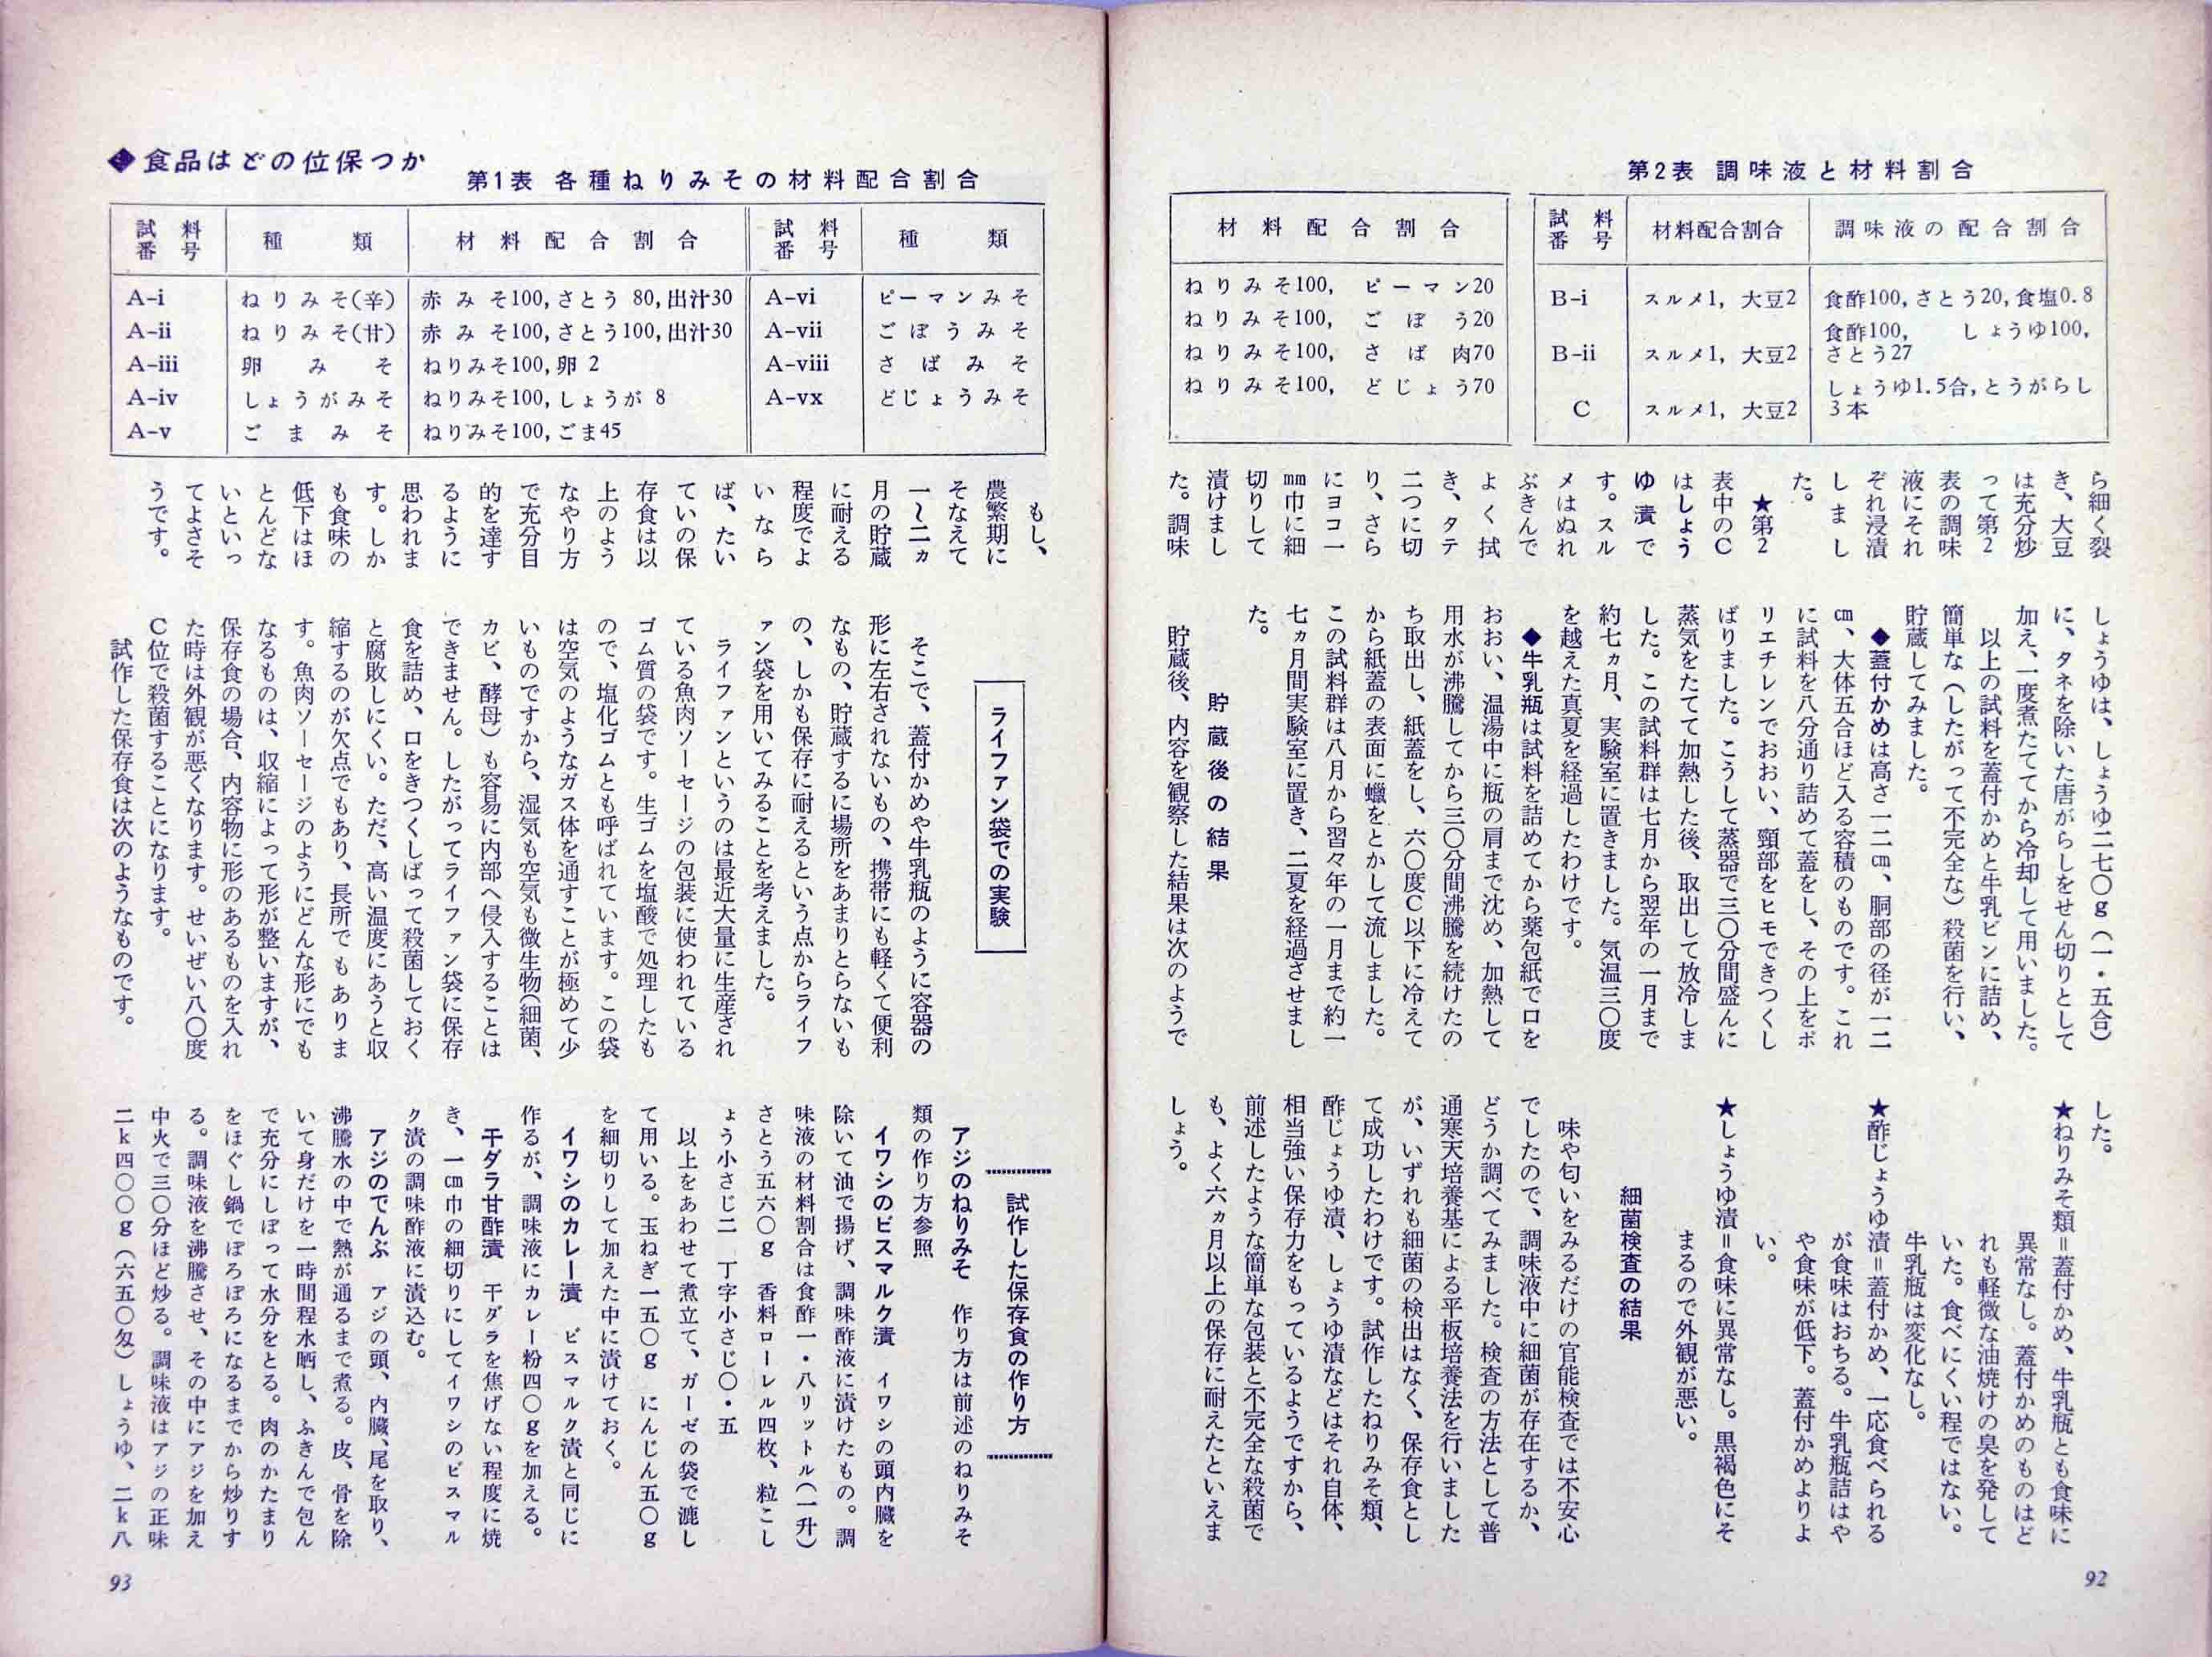 第2表 調味液と材料割合
試料番号 材料配合割合 調味液の配合割合
B-i スルメ1, 大豆2 食酢100, さとう20, 食塩0.8
B-ii スルメ1, 大豆2 食酢100, しょうゆ100,
さとう27
C スルメ1, 大豆2 しょうゆ1.5合, とうがらし
3本
材料配合割合
ねりみそ100, ピーマン20
ねりみそ100, ごぼう20
ねりみそ100, さば肉70
ねりみそ100, どじょう70
ら細く裂
き、大豆
は充分炒
って第2
表の調味
液にそれ
ぞれ浸漬
しまし
た。
★第2
表中のC
はしょう
ゆ漬で
す。スル
メはぬれ
ぶきんで
よく拭
き、タテ
二つに切
り、さら
にヨコ一
mm巾に細
切りして
漬けまし
た。調味
しょうゆは、しょうゆ二七〇g(一・五合)
に、タネを除いた唐がらしをせん切りとして
加え、一度煮たてから冷却して用いました。
以上の試料を蓋付かめと牛乳ビンに詰め、
簡単な(したがって不完全な)殺菌を行い、
貯蔵してみました。
◆蓋付かめは高さ一二cm、胴部の径が一二
cm、大体五合ほど入る容積のものです。これ
に試料を八分通り詰めて蓋をし、その上をポ
リエチレンでおおい、頸部をヒモできつくし
ばりました。こうして蒸器で三〇分間盛んに
蒸気をたてて加熱した後、取出して放冷しま
した。この試料群は七月から翌年の一月まで
約七ヵ月、実験室に置きました。気温三〇度
を越えた真夏を経過したわけです。
◆牛乳瓶は試料を詰めてから薬包紙で口を
おおい、温湯中に瓶の肩まで沈め、加熱して
用水が沸騰してから三〇分間沸騰を続けたの
ち取出し、紙蓋をし、六〇度C以下に冷えて
から紙蓋の表面に蠟をとかして流しました。
この試料群は八月から習々年の一月まで約一
七ヵ月間実験室に置き、二夏を経過させまし
た。
貯蔵後の結果
貯蔵後、内容を観察した結果は次のようで
した。
★ねりみそ類=蓋付かめ、牛乳瓶とも食味に
異常なし。蓋付かめのものはど
れも軽微な油焼けの臭を発して
いた。食べにくい程ではない。
牛乳瓶は変化なし。
★酢じょうゆ漬=蓋付かめ、一応食べられる
が食味はおちる。牛乳瓶詰はや
や食味が低下。蓋付かめよりよ
い。
★しょうゆ漬=食味に異常なし。黒褐色にそ
まるので外観が悪い。
細菌検査の結果
味や匂いをみるだけの官能検査では不安心
でしたので、調味液中に細菌が存在するか、
どうか調べてみました。検査の方法として普
通寒天培養基による平板培養法を行いました
が、いずれも細菌の検出はなく、保存食とし
て成功したわけです。試作したねりみそ類、
酢じょうゆ漬、しょうゆ漬などはそれ自体、
相当強い保存力をもっているようですから、
前述したような簡単な包装と不完全な殺菌で
も、よく六ヵ月以上の保存に耐えたといえま
しょう。
92
◆食品はどの位保つか
第1表 各種ねりみその材料配合割合
試料番号 種類 材料配合割合 試料番号 種類
A-i ねりみそ(辛) 赤みそ100, さとう 80, 出汁30 A-vi ピーマンみそ
A-ii ねりみそ(甘) 赤みそ100, さとう100, 出汁30 A-vii ごぼうみそ
A-iii 卵みそ ねりみそ100, 卵 2 A-viii さばみそ
A-iv しょうがみそ ねりみそ100, しょうが 8 A-vx どじょうみそ
A-v ごまみそ ねりみそ100, ごま45
もし、
農繁期に
そなえて
一〜二ヵ
月の貯蔵
に耐える
程度でよ
いなら
ば、たい
ていの保
存食は以
上のよう
なやり方
で充分目
的を達す
るように
思われま
す。しか
も食味の
低下はほ
とんどな
いといっ
てよさそ
うです。
ライファン袋での実験
そこで、蓋付かめや牛乳瓶のように容器の
形に左右されないもの、携帯にも軽くて便利
なもの、貯蔵するに場所をあまりとらないも
の、しかも保存に耐えるという点からライフ
ァン袋を用いてみることを考えました。
ライファンというのは最近大量に生産され
ている魚肉ソーセージの包装に使われている
ゴム質の袋です。生ゴムを塩酸で処理したも
ので、塩化ゴムとも呼ばれています。この袋
は空気のようなガス体を通すことが極めて少
いものですから、湿気も空気も微生物(細菌、
カビ、酵母)も容易に内部へ侵入することは
できません。したがってライファン袋に保存
食を詰め、口をきつくしばって殺菌しておく
と腐敗しにくい。ただ、高い温度にあうと収
縮するのが欠点でもあり、長所でもありま
す。魚肉ソーセージのようにどんな形にでも
なるものは、収縮によって形が整いますが、
保存食の場合、内容物に形のあるものを入れ
た時は外観が悪くなります。せいぜい八〇度
C位で殺菌することになります。
試作した保存食は次のようなものです。
試作した保存食の作り方
アジのねりみそ 作り方は前述のねりみそ
類の作り方参照
イワシのビスマルク漬 イワシの頭内臓を
除いて油で揚げ、調味酢液に漬けたもの。調
味液の材料割合は食酢一・八リットル(一升)
さとう五六〇g 香料ローレル四枚、粒こし
ょう小さじ二 丁字小さじ〇・五
以上をあわせて煮立て、ガーゼの袋で漉し
て用いる。玉ねぎ一五〇g にんじん五〇g
を細切りして加えた中に漬けておく。
イワシのカレー漬 ビスマルク漬と同じに
作るが、調味液にカレー粉四〇gを加える。
干ダラ甘酢漬 干ダラを焦げない程度に焼
き、一cm巾の細切りにしてイワシのビスマル
ク漬の調味酢液に漬込む。
アジのでんぶ アジの頭、内臓、尾を取り、
沸騰水の中で熱が通るまで煮る。皮、骨を除
いて身だけを一時間程水晒し、ふきんで包ん
で充分にしぼって水分をとる。肉のかたまり
をほぐし鍋でぽろぽろになるまでから炒りす
る。調味液を沸騰させ、その中にアジを加え
中火で三〇分ほど炒る。調味液はアジの正味
二k四〇〇g(六五〇匁)しょうゆ、二k八
93